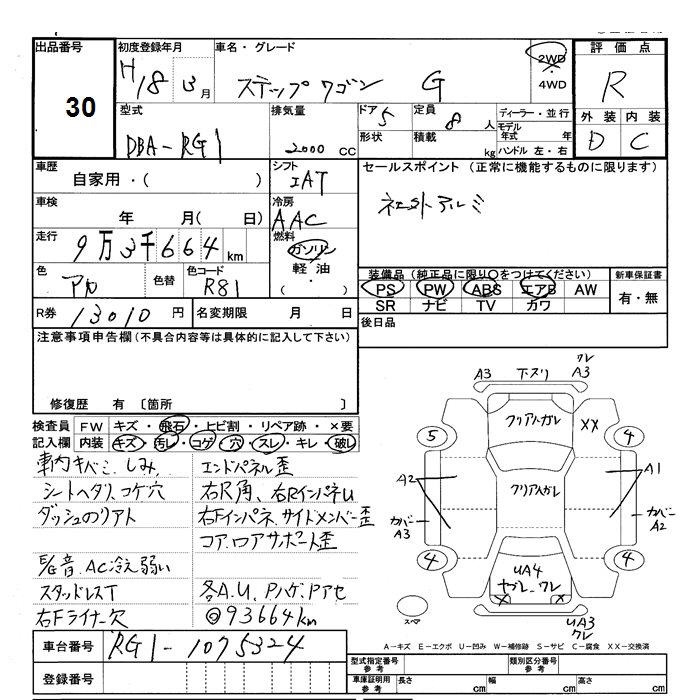 出品番号 初度登録年月 車名・グレード 評価点
30
H18 3月 ステップワゴン G 2WD
・
4WD
R
外装 内装
D C
型式 排気量 ドア 5 定員 8人 ディーラー・並行
モデル年式 年
DBA-RG1 2000 CC 形状 積載 kg ハンドル 左・右
車歴 シフト セールスポイント(正常に機能するものに限ります)
自家用・( ) IAT
社外アルミ
車検 冷房
年 月(日) AAC
走行 燃料
9万3千664km ガソリン
軽油
( )
色 色替 色コード
R81
装備品(純正品に限り○をつけてください) 新車保証書
PS PW ABS エアB AW 有・無
SR ナビ TV カワ
R券 13010円 名変期限 月 日 後日品
注意事項申告欄(不具合内容等は具体的に記入して下さい)
修復歴 有 〔箇所 〕
検査員 FW キズ・飛石・ヒビ割・リペア跡・×要
記入欄 内装 キズ・汚レ・コゲ・穴・スレ・キレ・破レ
車内キバミ、しみ、 エンドパネル歪
シートヘタリ、コゲ穴 右尺角、右RインパネU
ダッシュのリアト 右Fインパネ、サイドメンバー歪
コア、ロアサポート歪
異音、AC冷え弱い
スタッドレスT 各A.U、Pハゲ、Pアセ
右Fライナー欠 ◎93664km
車台番号 RG1-1075324
登録番号
A3 下ヌリ ワレ
A3
フクリアハガレ XX
5 4
A2 クリアハガレ A1
カバー
A3
カバー
A2
4 4
UA4
ヤブレ、ワレ
X X
スペア
UA3
ワレ
A-キズ E-エクボ U-凹み W-補修跡 S-サビ C-腐食 XX-交換済
型式指定番号
参考 類別区分番号
参考
車庫証明用
参考 長さ cm 幅 cm 高さ cm